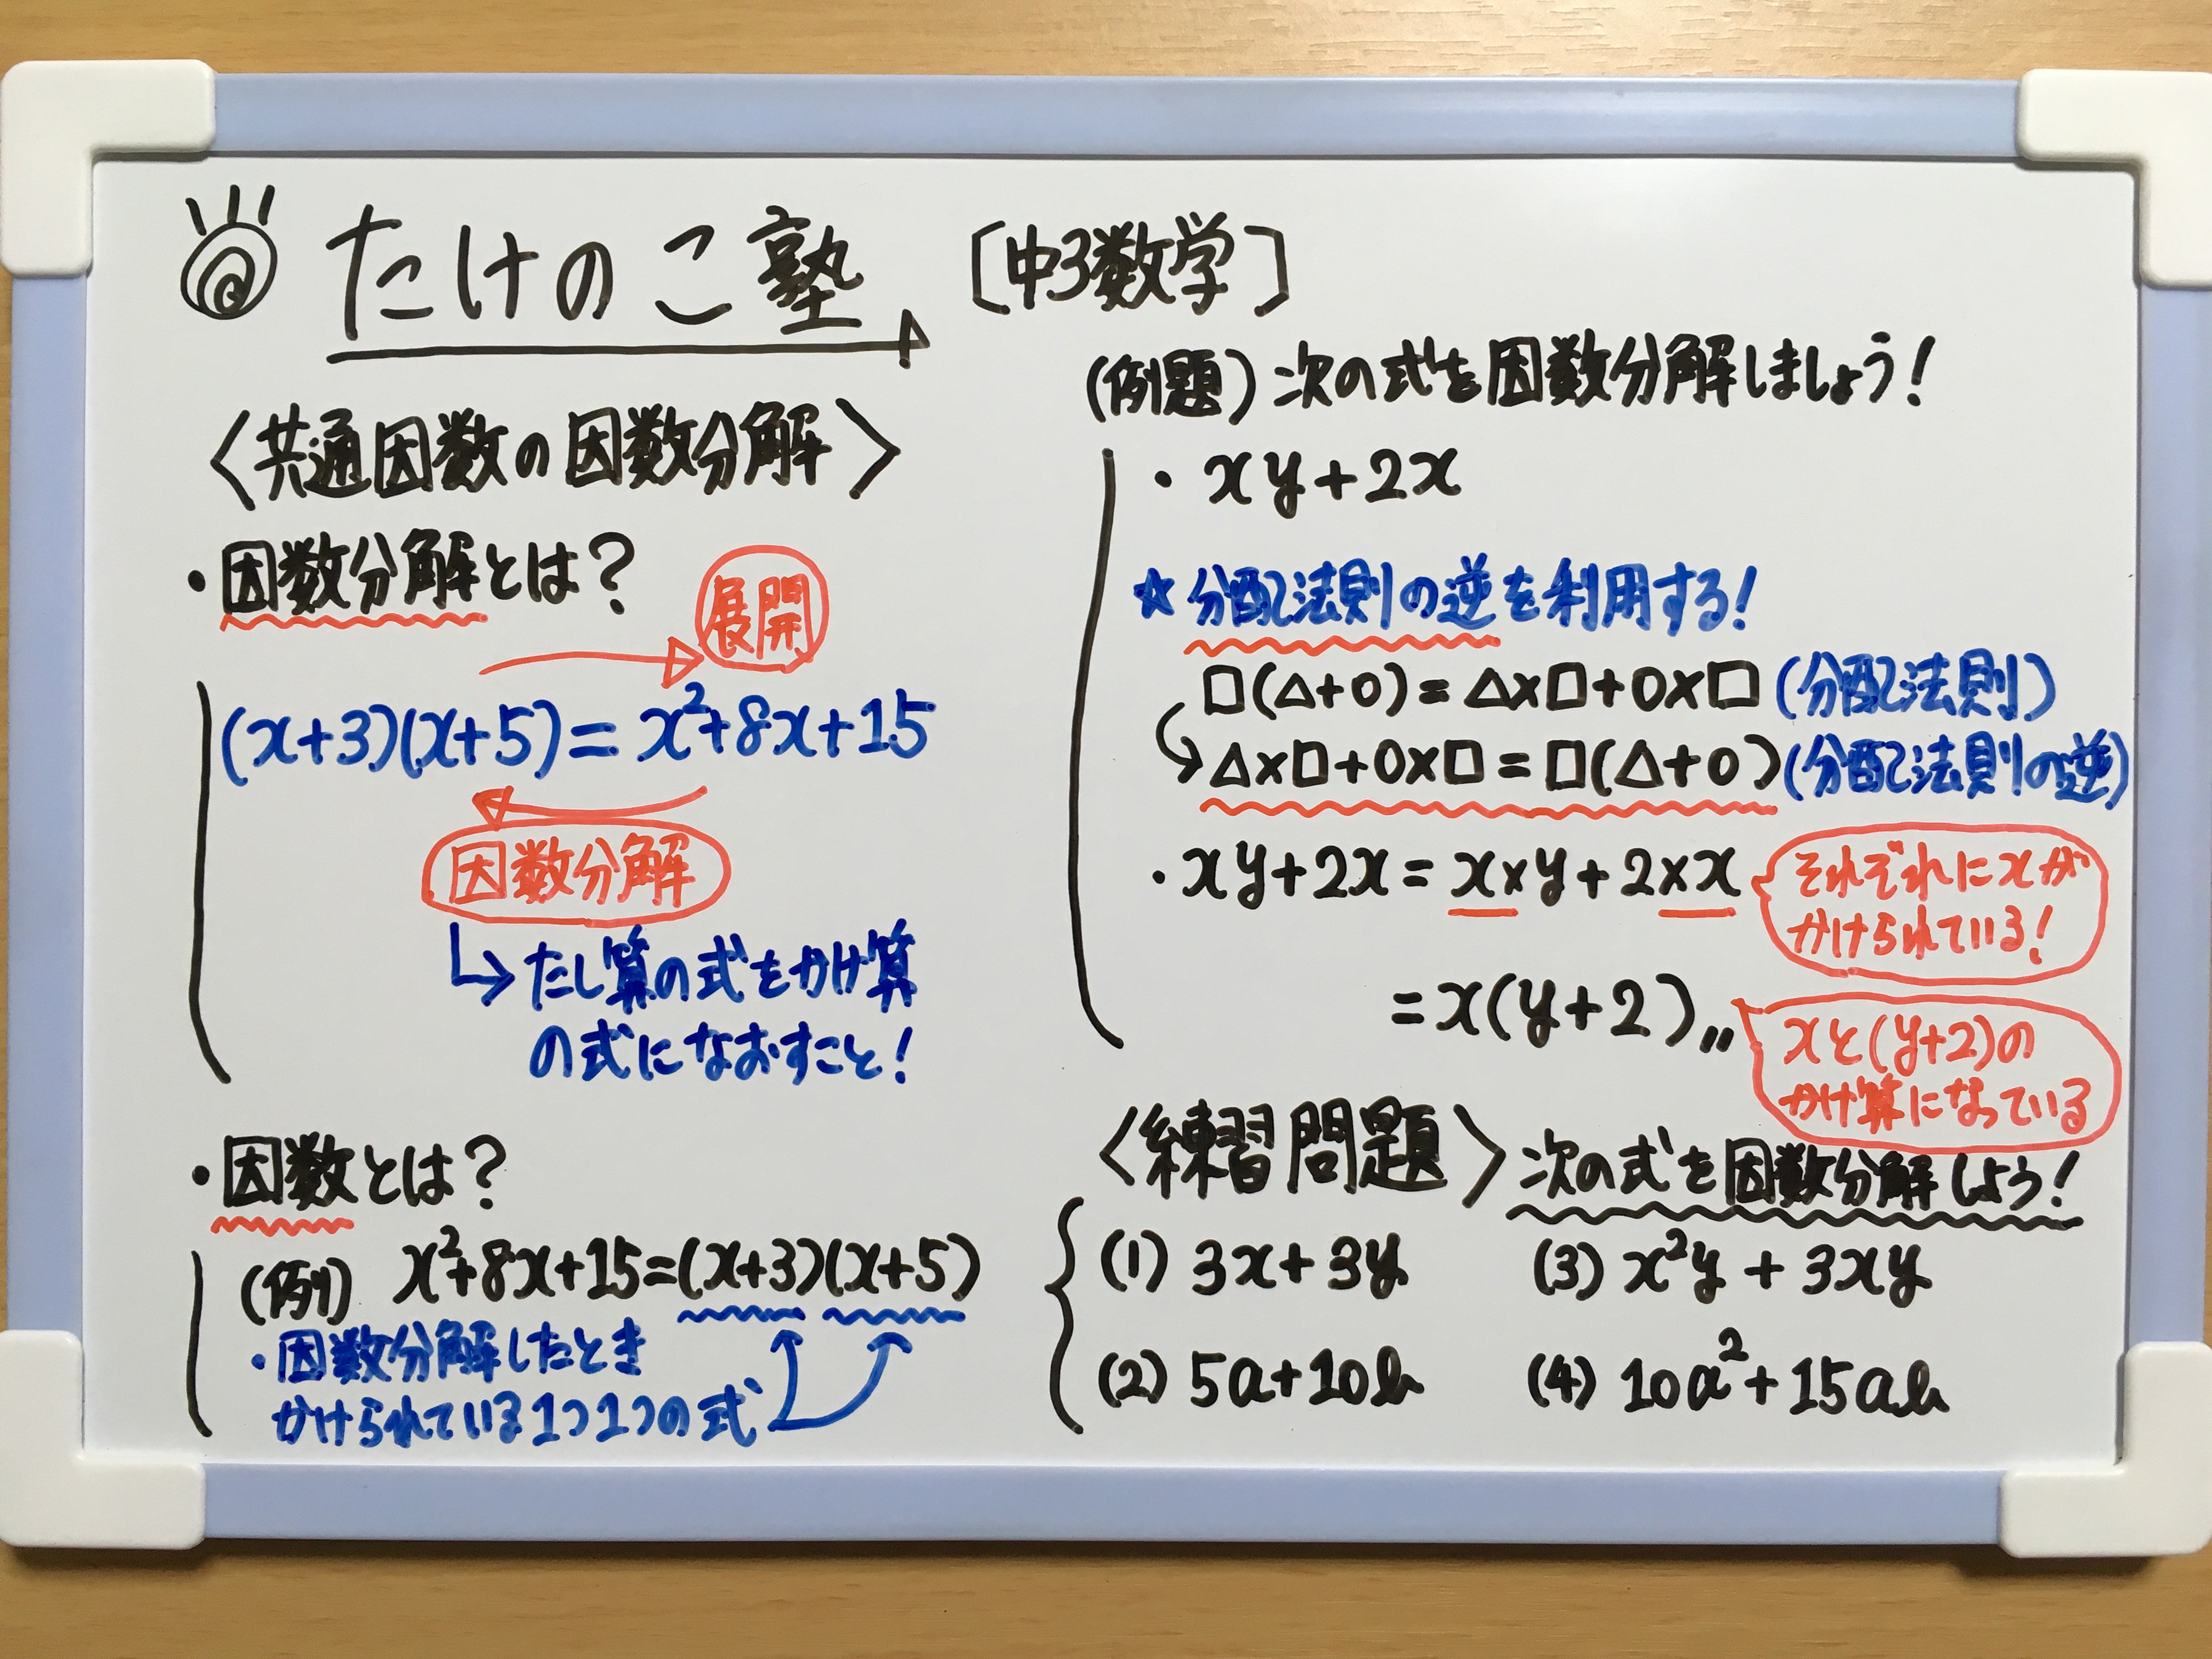 たけのこ塾 〔中3数学〕
〈共通因数の因数分解〉
・因数分解とは?
展開
(x+3)(x+5)=x²+8x+15
因数分解
↳たし算の式をかけ算
の式になおすこと!
・因数とは?
(例) x²+8x+15=(x+3)(x+5)
・因数分解したとき
かけられている1つ1つの式
(例題) 次の式を因数分解しましょう!
・xy+2x
☆分配法則の逆を利用する!
□(△+○)=△×□+○×□(分配法則)
△×□+○×□=□(△+○)(分配法則の逆)
・xy+2x=x×y+2×x
それぞれにxが
かけられている!
=x(y+2)〃
xと(y+2)の
かけ算になっている
〈練習問題〉次の式を因数分解しよう!
(1) 3x+3y (3) x²y+3xy
(2) 5a+10b (4) 10a²+15ab